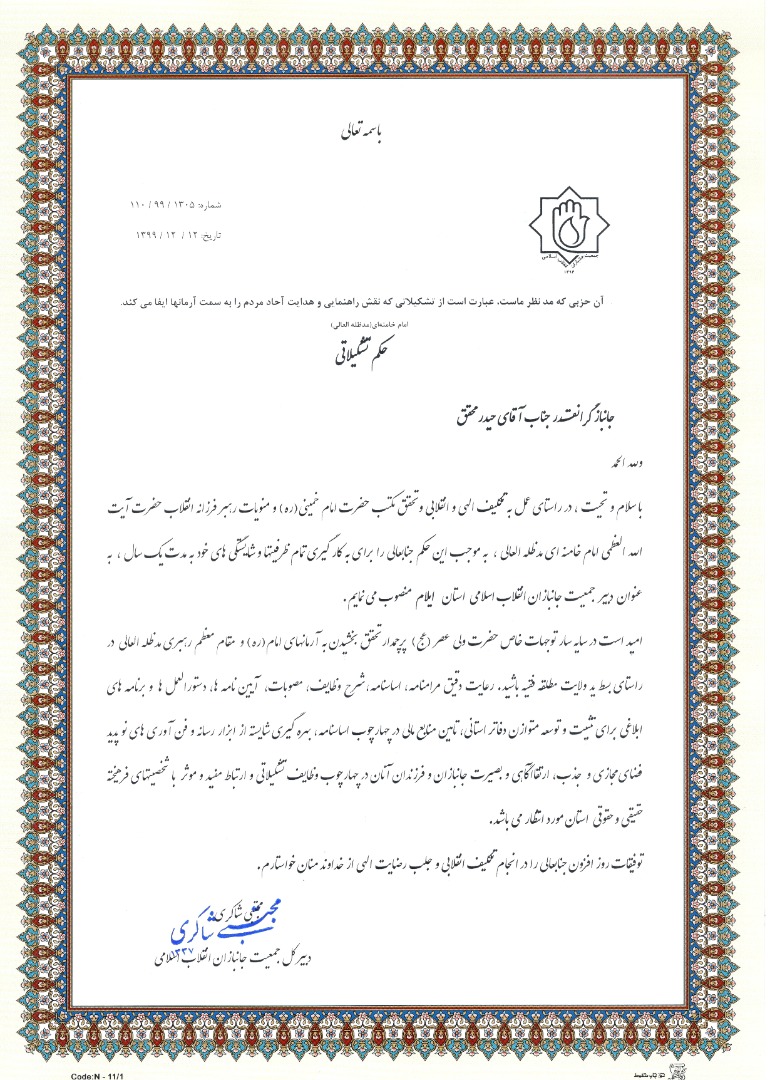 باسمه تعالی
شماره: ۱۳۰۵ / ۹۹ / ۱۱۰
تاریخ: ۱۲ / ۱۲ / ۱۳۹۹
آن حزبی که مد نظر ماست، عبارت است از تشکیلاتی که نقش راهنمایی و هدایت آحاد مردم را به سمت آرمانها ایفا می کند.
امام خامنه‌ای(مدظله العالی)
حکم تشکیلاتی
جانباز گرانقدر جناب آقای حیدر محقق
ولله الحمد
با سلام و تحیت ، در راستای عمل به تکلیف الهی و انقلابی و تحقق مکتب حضرت امام خمینی (ره) و منویات رهبر فرزانه انقلاب حضرت آیت
الله العظمی امام خامنه ای مدظله العالی ، به موجب این حکم جنابعالی را برای به کار گیری تمام ظرفیتها و شایستگی های خود به مدت یک سال ، به
عنوان دبیر جمعیت جانبازان انقلاب اسلامی استان ایلام منصوب می نمایم .
امید است در سایه سار توجهات خاص حضرت ولی عصر (عج) پرچمدار تحقق بخشیدن به آرمانهای امام (ره) و مقام معظم رهبری مدظله العالی در
راستای بسط ید ولایت مطلقه فقیه باشید. رعایت دقیق مرامنامه، اساسنامه، شرح وظایف، مصوبات، آیین نامه ها، دستورالعمل ها و برنامه های
ابلاغی برای تثبیت و توسعه متوازن دفاتر استانی، تامین منابع مالی در چهارچوب اساسنامه، بهره گیری شایسته از ابزار رسانه و فن آوری های نو پدید
فضای مجازی و جذب، ارتقاآگاهی و بصیرت جانبازان و فرزندان آنان در چهارچوب وظایف تشکیلاتی و ارتباط مفید و موثر با شخصیتهای فرهیخته
حقیقی و حقوقی استان مورد انتظار می باشد.
توفیقات روز افزون جنابعالی را در انجام تکلیف انقلابی و جلب رضایت الهی از خداوند منان خواستارم .
مجتبی شاکری
مجتبی شاکری
دبیر کل جمعیت جانبازان انقلاب اسلامی
Code:N - 11/1